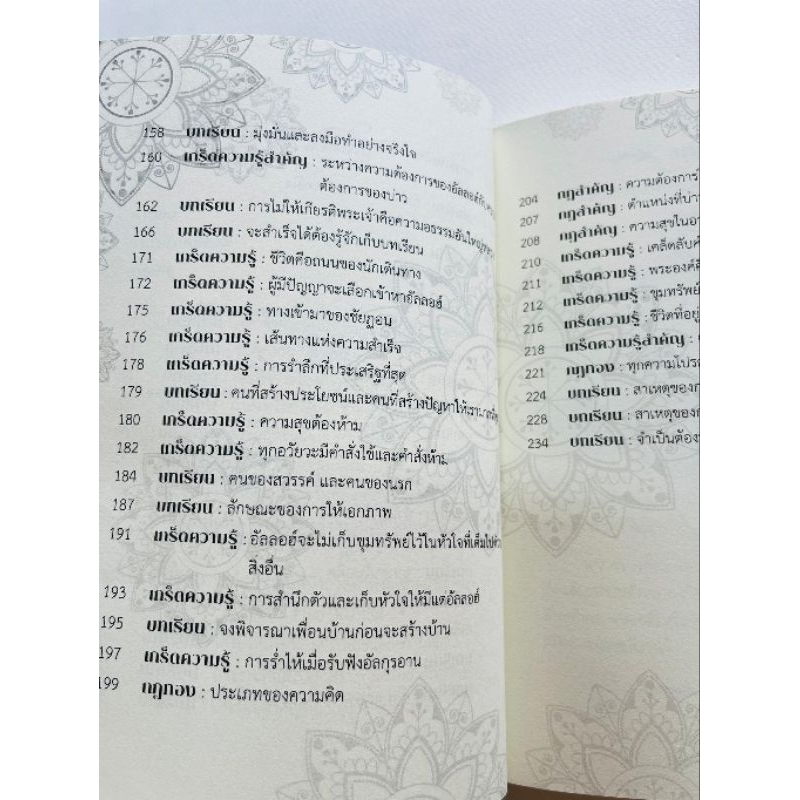 158 บทเรียน : มุ่งมั่นและลงมือทำอย่างจริงใจ
160 เกร็ดความรู้สำคัญ : ระหว่างความต้องการของอัลลอฮ์กับ
ต้องการของบ่าว
162 บทเรียน : การไม่ให้เกียรติพระเจ้าคือความอธรรมอันใหญ่หลวง
166 บทเรียน : จะสำเร็จได้ต้องรู้จักเก็บบทเรียน
171 เกร็ดความรู้ : ชีวิตคือถนนของนักเดินทาง
172 เกร็ดความรู้ : ผู้มีปัญญาจะเลือกเข้าหาอัลลอฮ์
175 เกร็ดความรู้ : ทางเข้ามาของชัยฏอน
176 เกร็ดความรู้ : เส้นทางแห่งความสำเร็จ
178 เกร็ดความรู้ : การรำลึกที่ประเสริฐที่สุด
179 บทเรียน : คนที่สร้างประโยชน์และคนที่สร้างปัญหาให้เรา
180 เกร็ดความรู้ : ความสุขต้องห้าม
182 เกร็ดความรู้ : ทุกอวัยวะมีคำสั่งใช้และคำสั่งห้าม
184 บทเรียน : คนของสวรรค์ และคนของนรก
187 บทเรียน : ลักษณะของการให้เอกภาพ
191 เกร็ดความรู้ : อัลลอฮ์จะไม่เก็บขุมทรัพย์ไว้ในหัวใจที่เต็มไป
สิ่งอื่น
193 เกร็ดความรู้ : การสำนึกตัวและเก็บหัวใจให้มีแต่อัลลอฮ์
195 บทเรียน : จงพิจารณาเพื่อนบ้านก่อนจะสร้างบ้าน
197 เกร็ดความรู้ : การร่ำไห้เมื่อรับฟังอัลกุรอาน
199 กฎทอง : ประเภทของความคิด
204 กฎสำคัญ : ความต้องการ
207 กฎสำคัญ : ตำแหน่งที่บ่าว
208 กฎสำคัญ : ความสุขใน
210 เกร็ดความรู้ : เคล็ดลับ
211 เกร็ดความรู้ : พระองค์
212 เกร็ดความรู้ : ขุมทรัพย์
216 เกร็ดความรู้ : ชีวิตที่อยู่
218 เกร็ดความรู้สำคัญ :
221 กฎทอง : ทุกความโปรด
224 บทเรียน : สาเหตุของ
228 บทเรียน : สาเหตุของ
234 บทเรียน : จำเป็นต้อง